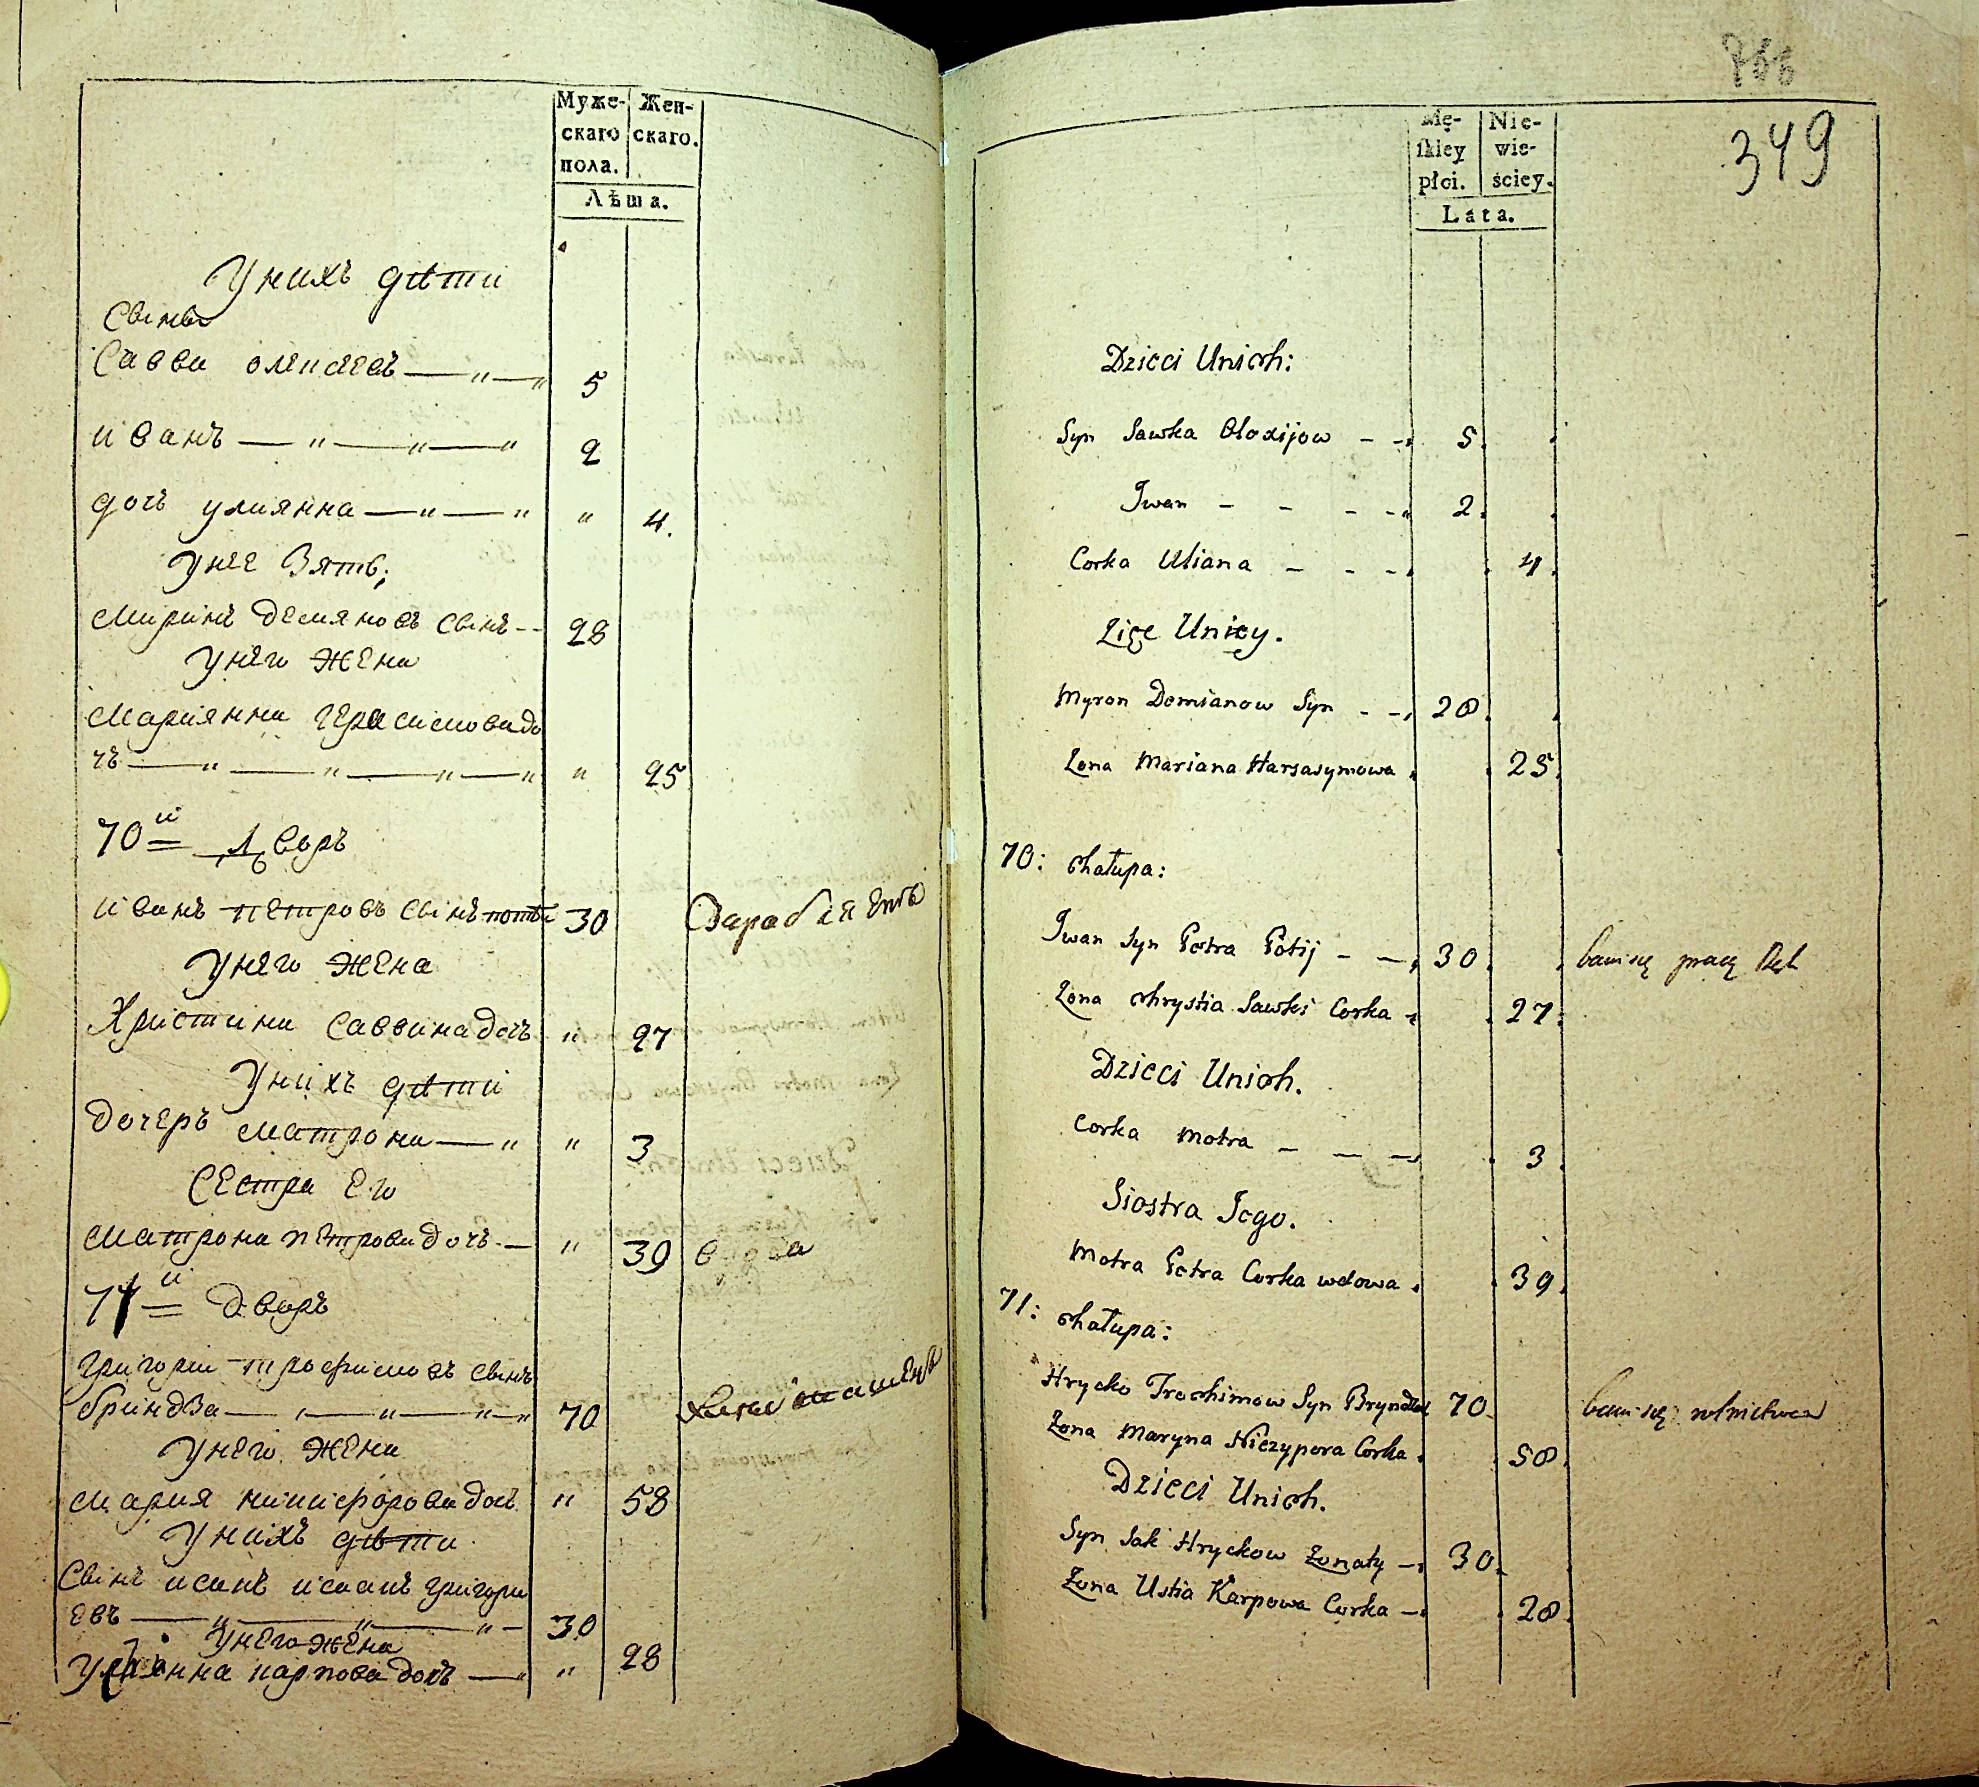 Муже-
скаго
пола.
Жен-
скаго.
Лѣта.
Унихъ дѣти
Сынъ
Савва олексеевъ — " — " 5
иванъ — " — " — " 2
дочь улиянна — " — " " 4.
Унее Зять;
Миринъ демяновъ сынъ -- 28
Унего жена
Мариянна герасимова до
чъ — " — " — " — " " 25
70й Дворъ
иванъ петровъ сынъ 30
Унего жена
Христина Саввина дочъ " 27
Унихъ дѣти
дочеръ матрона — " " 3
Сестра Его
Матрона петрова дочъ — " 39 вдова
71й дворъ
григорій трофимовъ сынъ
бриндза — " — " — " " 70
Унего жена
Мария никифорова дочъ " 58
Унихъ дѣти
Сынъ исакъ григори
евъ — " — " — " — 30
Унего жена
карпова дочъ — " " 28
766
349
Mę-
skiey
płci.
Nie-
wie-
ściey.
Lata.
Dzieci Unich:
Syn Sawka Olexijow - - 5.
Iwan - - - - 2.
Corka Uliana - - - 4.
Zięc Uniey.
Myron Demianow Syn - - 28.
Zona Mariana Harasymowa 25.
70: chałupa:
Iwan Syn Petra Potij - — 30. bawi się pracą
Zona Chrystia Sawki Corka - 27.
Dzieci Unich.
Corka Motra - — — 3.
Siostra Jego.
Motra Petra Corka wdowa . 39.
71: chałupa:
Hrycko Trochimow Syn Bryndza 70. bawi się rolnictwem
Zona Maryna Niczypora Corka . 58.
Dzieci Unich.
Syn Sak Hryckow żonaty — 30.
Zona Ustia Karpowa Corka — 28.